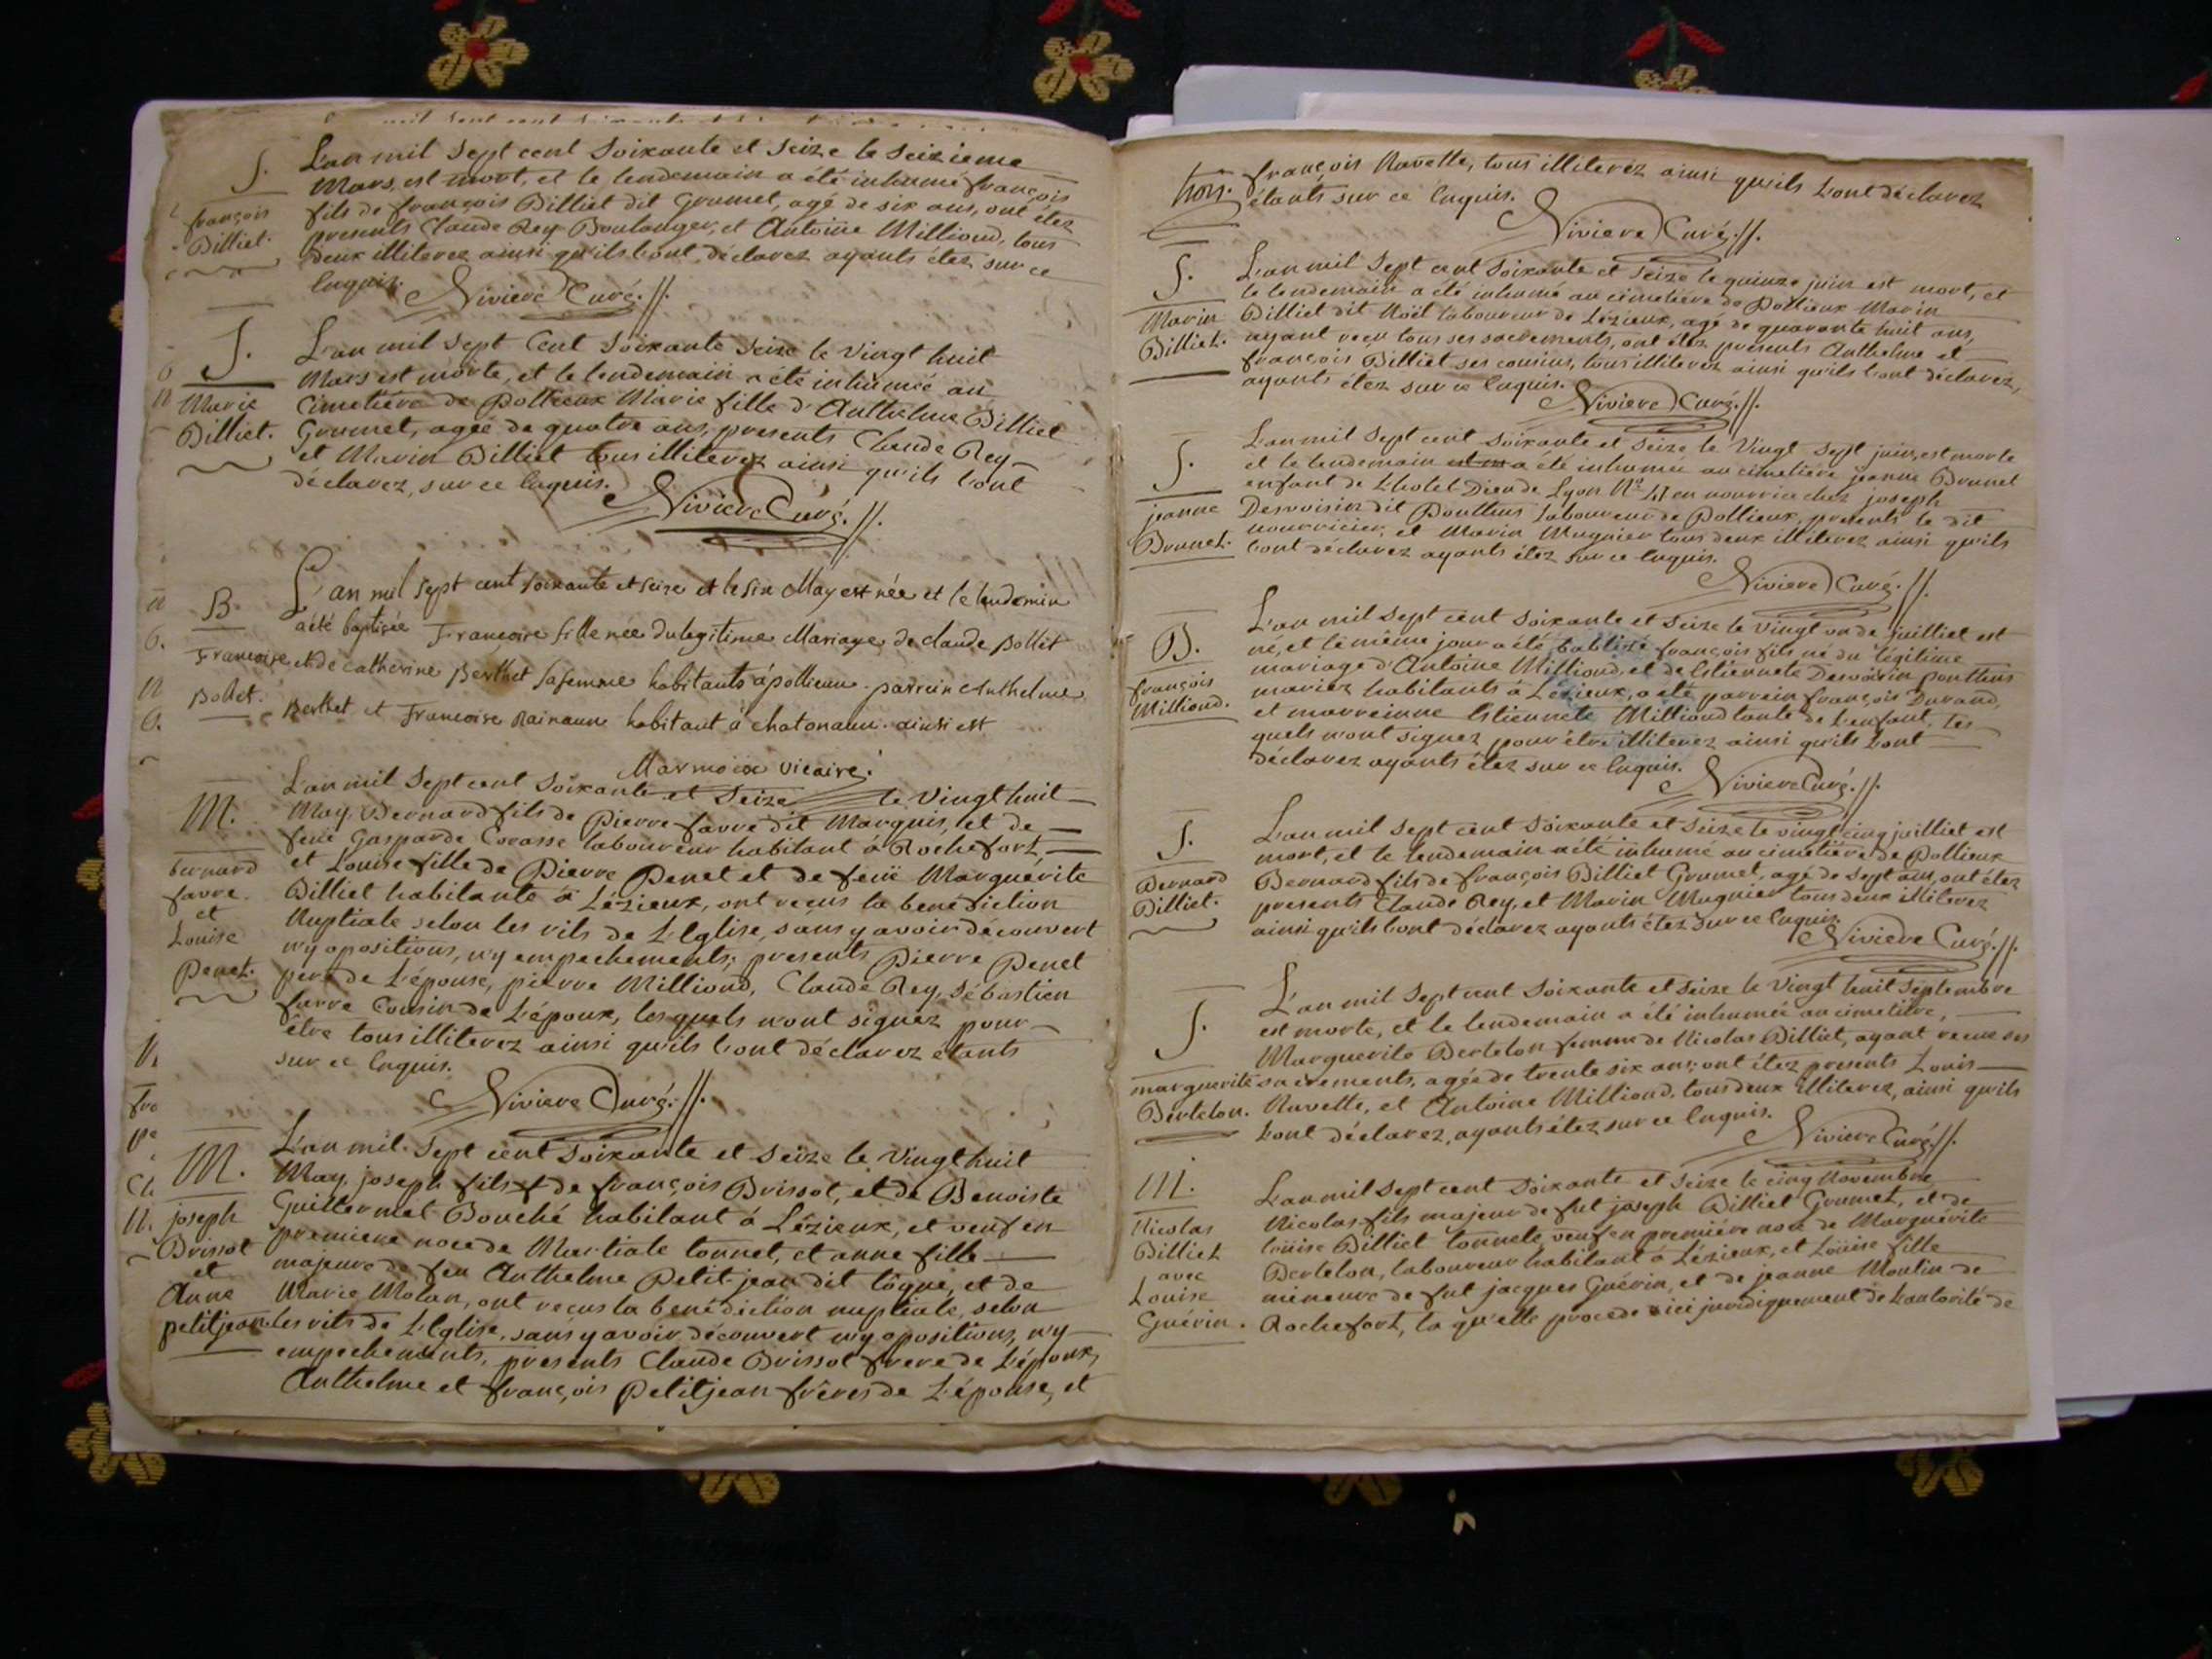 S.
françois
Billiet.
L'an mil Sept cent Soixante et Seize le Seizieme
Mars, est mort, et le lendemain a été inhumé françois
fils de françois Billiet dit Grumet, agé de six ans, ont étez
presents Claude Rey Boulanger, et Antoine Milliond, tous
deux illiterez ainsi qu'ils l'ont déclarez ayants étez sur ce
Enquis.
Riviere Curé.//.
S.
Marie
Billiet.
L'an mil Sept Cent Soixante Seize le Vingt huit
Mars est morte, et le lendemain a été inhumée au
Cimetiére de Pollieux Marie fille d'Anthelme Billiet
Grumet, agée de quatre ans, presents Claude Rey
et Marin Billiet tous illiterez ainsi qu'ils l'ont
déclarez, sur ce Enquis.
Riviere Curé.//.
B.
Francoise
Pollet.
L'an mil sept cent soixante et seize et le six May est née et le lendemin
a été baptisée Francoise fille née du legitime Mariage de claude pollet
et de catherine Berthet sa femme habitants à pollieux. parrein Anthelme
Berthet et Francoise Rainaux habitant à chatonaux. ainsi est
Marmoix vicaire.
M.
Bernard
favre.
et
Louise
Penet.
L'an mil Sept cent Soixante et Seize le Vingt huit
May, Bernard fils de Pierre favre dit Marquis, et de
feüe Gasparde Cocasse laboureur habitant à Rochefort,
et Louise fille de Pierre Penet et de feüe Marguerite
Billiet habitante à Lézieux, ont reçus la benédiction
Nuptiale selon les rits de L'Eglise, sans y avoir découvert
n'y opositions, n'y empechements; presents Pierre Penet
pere de L'épouse, pierre Milliond, Claude Rey, Sébastien
favre Cousin de L'époux, les quels n'ont signez pour
être tous illiterez ainsi qu'ils l'ont déclarez étants
sur ce Enquis.
Riviere Curé.//.
M.
joseph
Brissot
et
Anne
petitjean
L'an mil Sept cent Soixante et Seize le Vingt huit
May, joseph fils de françois Brissot, et de Benoiste
Guillermet Bouché habitant à Lézieux, et veuf en
premiere noce de Martiale tonnet, et anne fille
majeure de feu Anthelme Petit-jean dit togne, et de
Marie Molan, ont reçus la benédiction nuptiale, selon
les rits de L'Eglise, sans y avoir découvert n'y opositions, n'y
empechements, presents Claude Brissot frere de L'époux,
Anthelme et françois Petitjean frêres de L'épouse, et
françois Ravette, tous illiterez ainsi qu'ils L'ont déclarez
étants sur ce Enquis.
Riviere Curé.//.
S.
Marin
Billiet.
L'an mil Sept cent Soixante et Seize le quinze juin est mort, et
le lendemain a été inhumé au cimetiére de Pollieux Marin
Billiet dit Noël laboureur de Lézieux, agé de quarante huit ans,
ayant reçu tous ses sacrements, ont étez presents Anthelme et
françois Billiet ses cousins, tous illiterez ainsi qu'ils l'ont déclarez,
ayants étez sur ce Enquis.
Riviere Curé.//.
S.
jeanne
Brunet.
L'an mil Sept cent Soixante et Seize le Vingt Sept juin, est morte
et le lendemain a été inhumée au cimetiére jeanne Brunet
enfant de L'hotel Dieu de Lyon N.o 41 en nourrice chez joseph
Desvoisin dit Ponthus Laboureur de Pollieux, presents le dit
nourricier, et Marin Mugnier tous deux illiterez ainsi qu'ils
l'ont déclarez ayants étez sur ce Enquis.
Riviere Curé.//.
B.
françois
Milliond.
L'an mil Sept cent Soixante et Seize le Vingt un de juilliet est
né, et le même jour a été babtisé françois fils né du légitime
mariage d'Antoine Milliond, et de Etiennete Desvoisin ponthus
mariez habitants à Lézieux, a été parrein françois Durand,
et marreinne Etiennete Milliond tante de L'enfant, les
quels n'ont signez pour être illiterez ainsi qu'ils l'ont
déclarez ayants étez sur ce Enquis.
Riviere Curé.//.
S.
Bernard
Billiet.
L'an mil Sept cent Soixante et Seize le vingt cinq juilliet est
mort, et le lendemain a été inhumé au cimetiére de Pollieux
Bernard fils de françois Billiet Grumet, agé de Sept ans, ont étez
presents Claude Rey, et Marin Mugnier tous deux illiterez
ainsi qu'ils l'ont déclarez ayants étez sur ce Enquis.
Riviere Curé.//.
S.
marguerite
Bertelon.
L'an mil Sept cent Soixante et Seize le Vingt huit Septembre
est morte, et le lendemain a été inhumée au cimetiére,
Marguerite Bertelon femme de Nicolas Billiet, ayant reçue ses
sacrements, agée de trente six ans; ont étez presents Louis
Ravette, et Antoine Milliond, tous deux illiterez, ainsi qu'ils
L'ont déclarez, ayants étez sur ce Enquis.
Riviere Curé.//.
M.
Nicolas
Billiet
avec
Louise
Guérin.
L'an mil Sept cent Soixante et Seize le cinq Novembre
Nicolas fils majeur de fut joseph Billiet Grumet, et de
loüise Billiet tonnele, veuf en premiére noce de Marguerite
Bertelon, laboureur habitant à Lézieux, et Loüise fille
mineure de fut jacques Guérin, et de jeanne Moulin de
Rochefort, la qu'elle procede ici juridiquement de L'autorité de